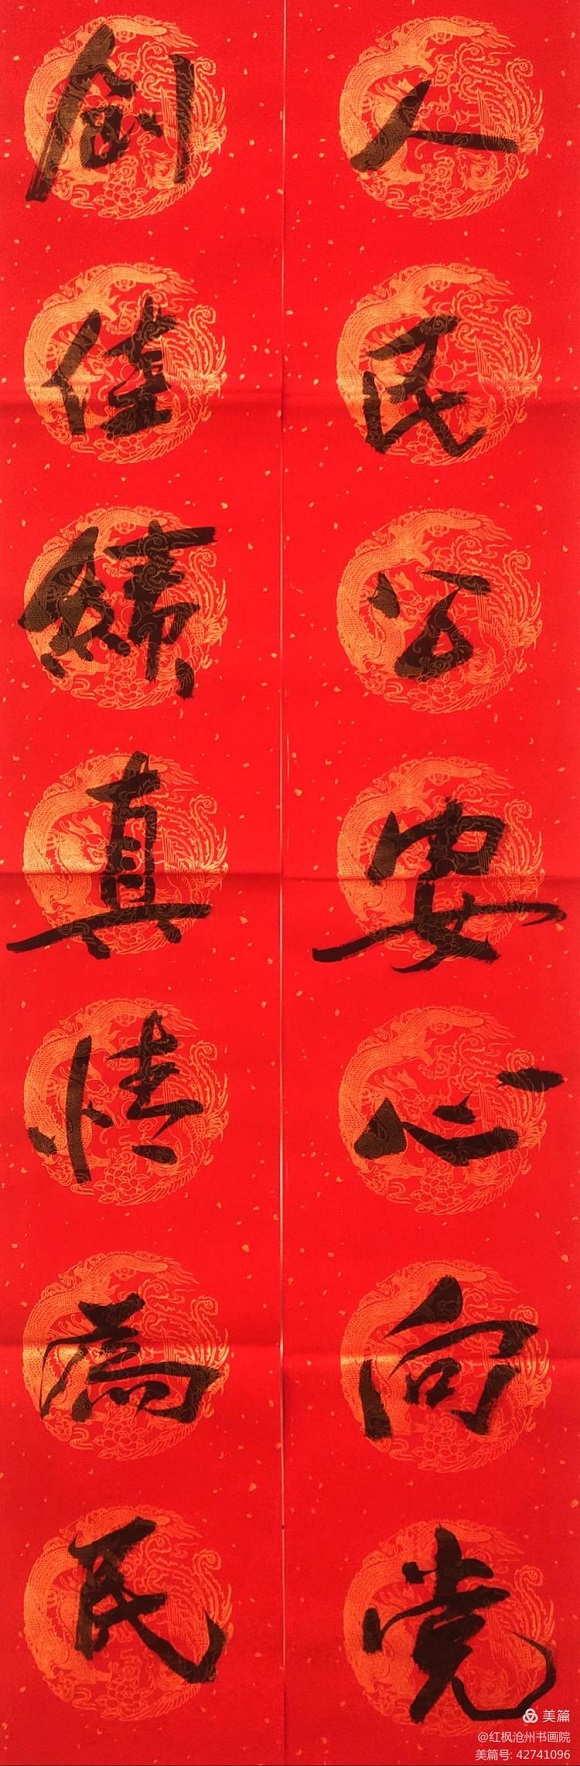 人民公安心向党
创佳绩真情为民
美篇
@红枫沧州书画院
美篇号: 42741096